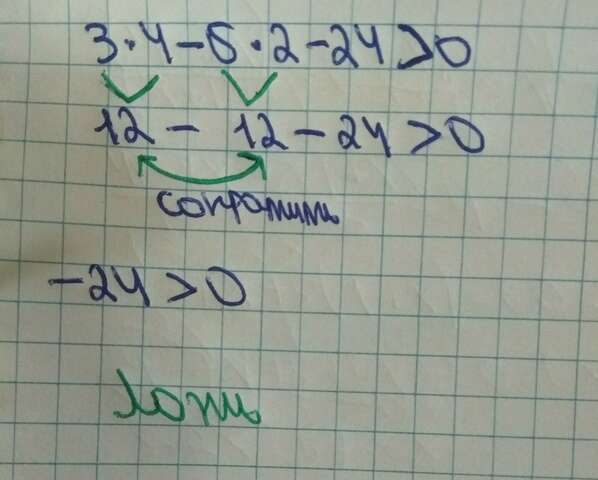 3·4-6·2-24>0
12 - 12-24>0
сократить
-24>0
ложь